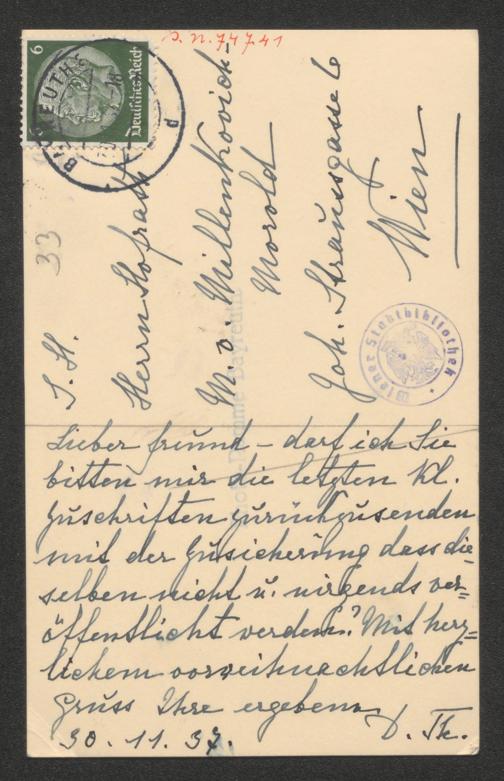 J. N. 74741
6
Deutsches Reich
BAYREUTH 2
33
S. H.
Herrn Hofrath
M. v. Millenkovich-
Morold
Joh. Straussgasse 6
Wien
Wiener Stadtbibliothek
Lieber Freund – darf ich Sie
bitten mir die letzten kl.
Zuschriften zurückzusenden
mit der Zusicherung dass die=
selben nicht u. nirgends ver=
öffentlicht werden? Mit herz=
lichem vorweihnachtlichen
Gruss Ihre ergebene
D. Th.
30. 11. 37.